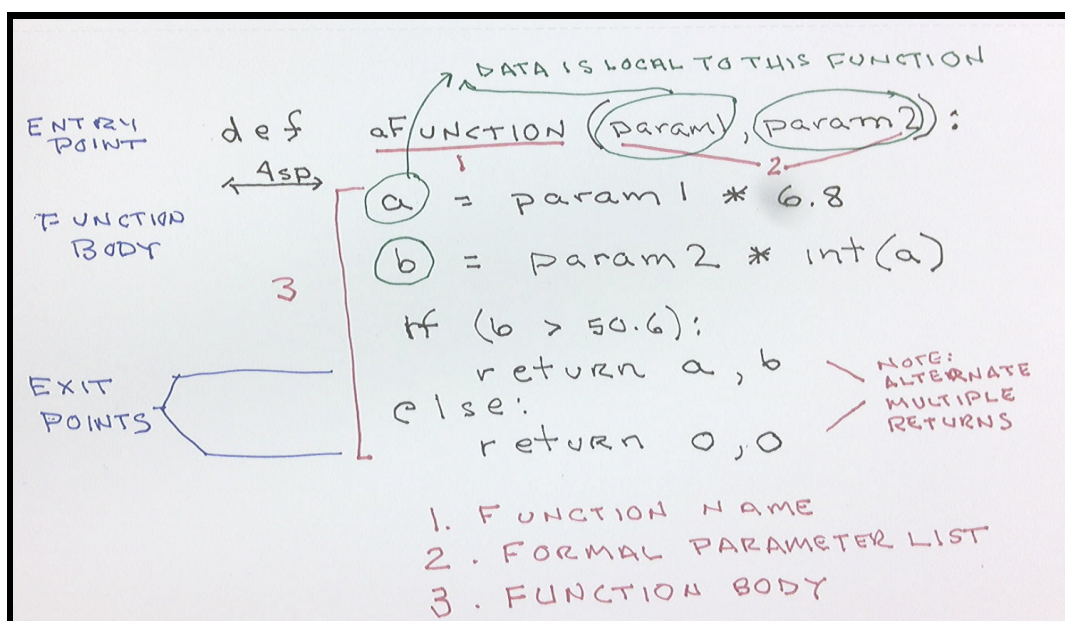 DATA IS LOCAL TO THIS FUNCTION
ENTRY POINT
def aFUNCTION (param1, param2):
1
2
4sp
a = param1 * 6.8
FUNCTION BODY
b = param2 * int(a)
3
if (b > 50.6):
return a, b
else:
return 0, 0
EXIT POINTS
NOTE:
ALTERNATE
MULTIPLE
RETURNS
1. FUNCTION NAME
2. FORMAL PARAMETER LIST
3. FUNCTION BODY